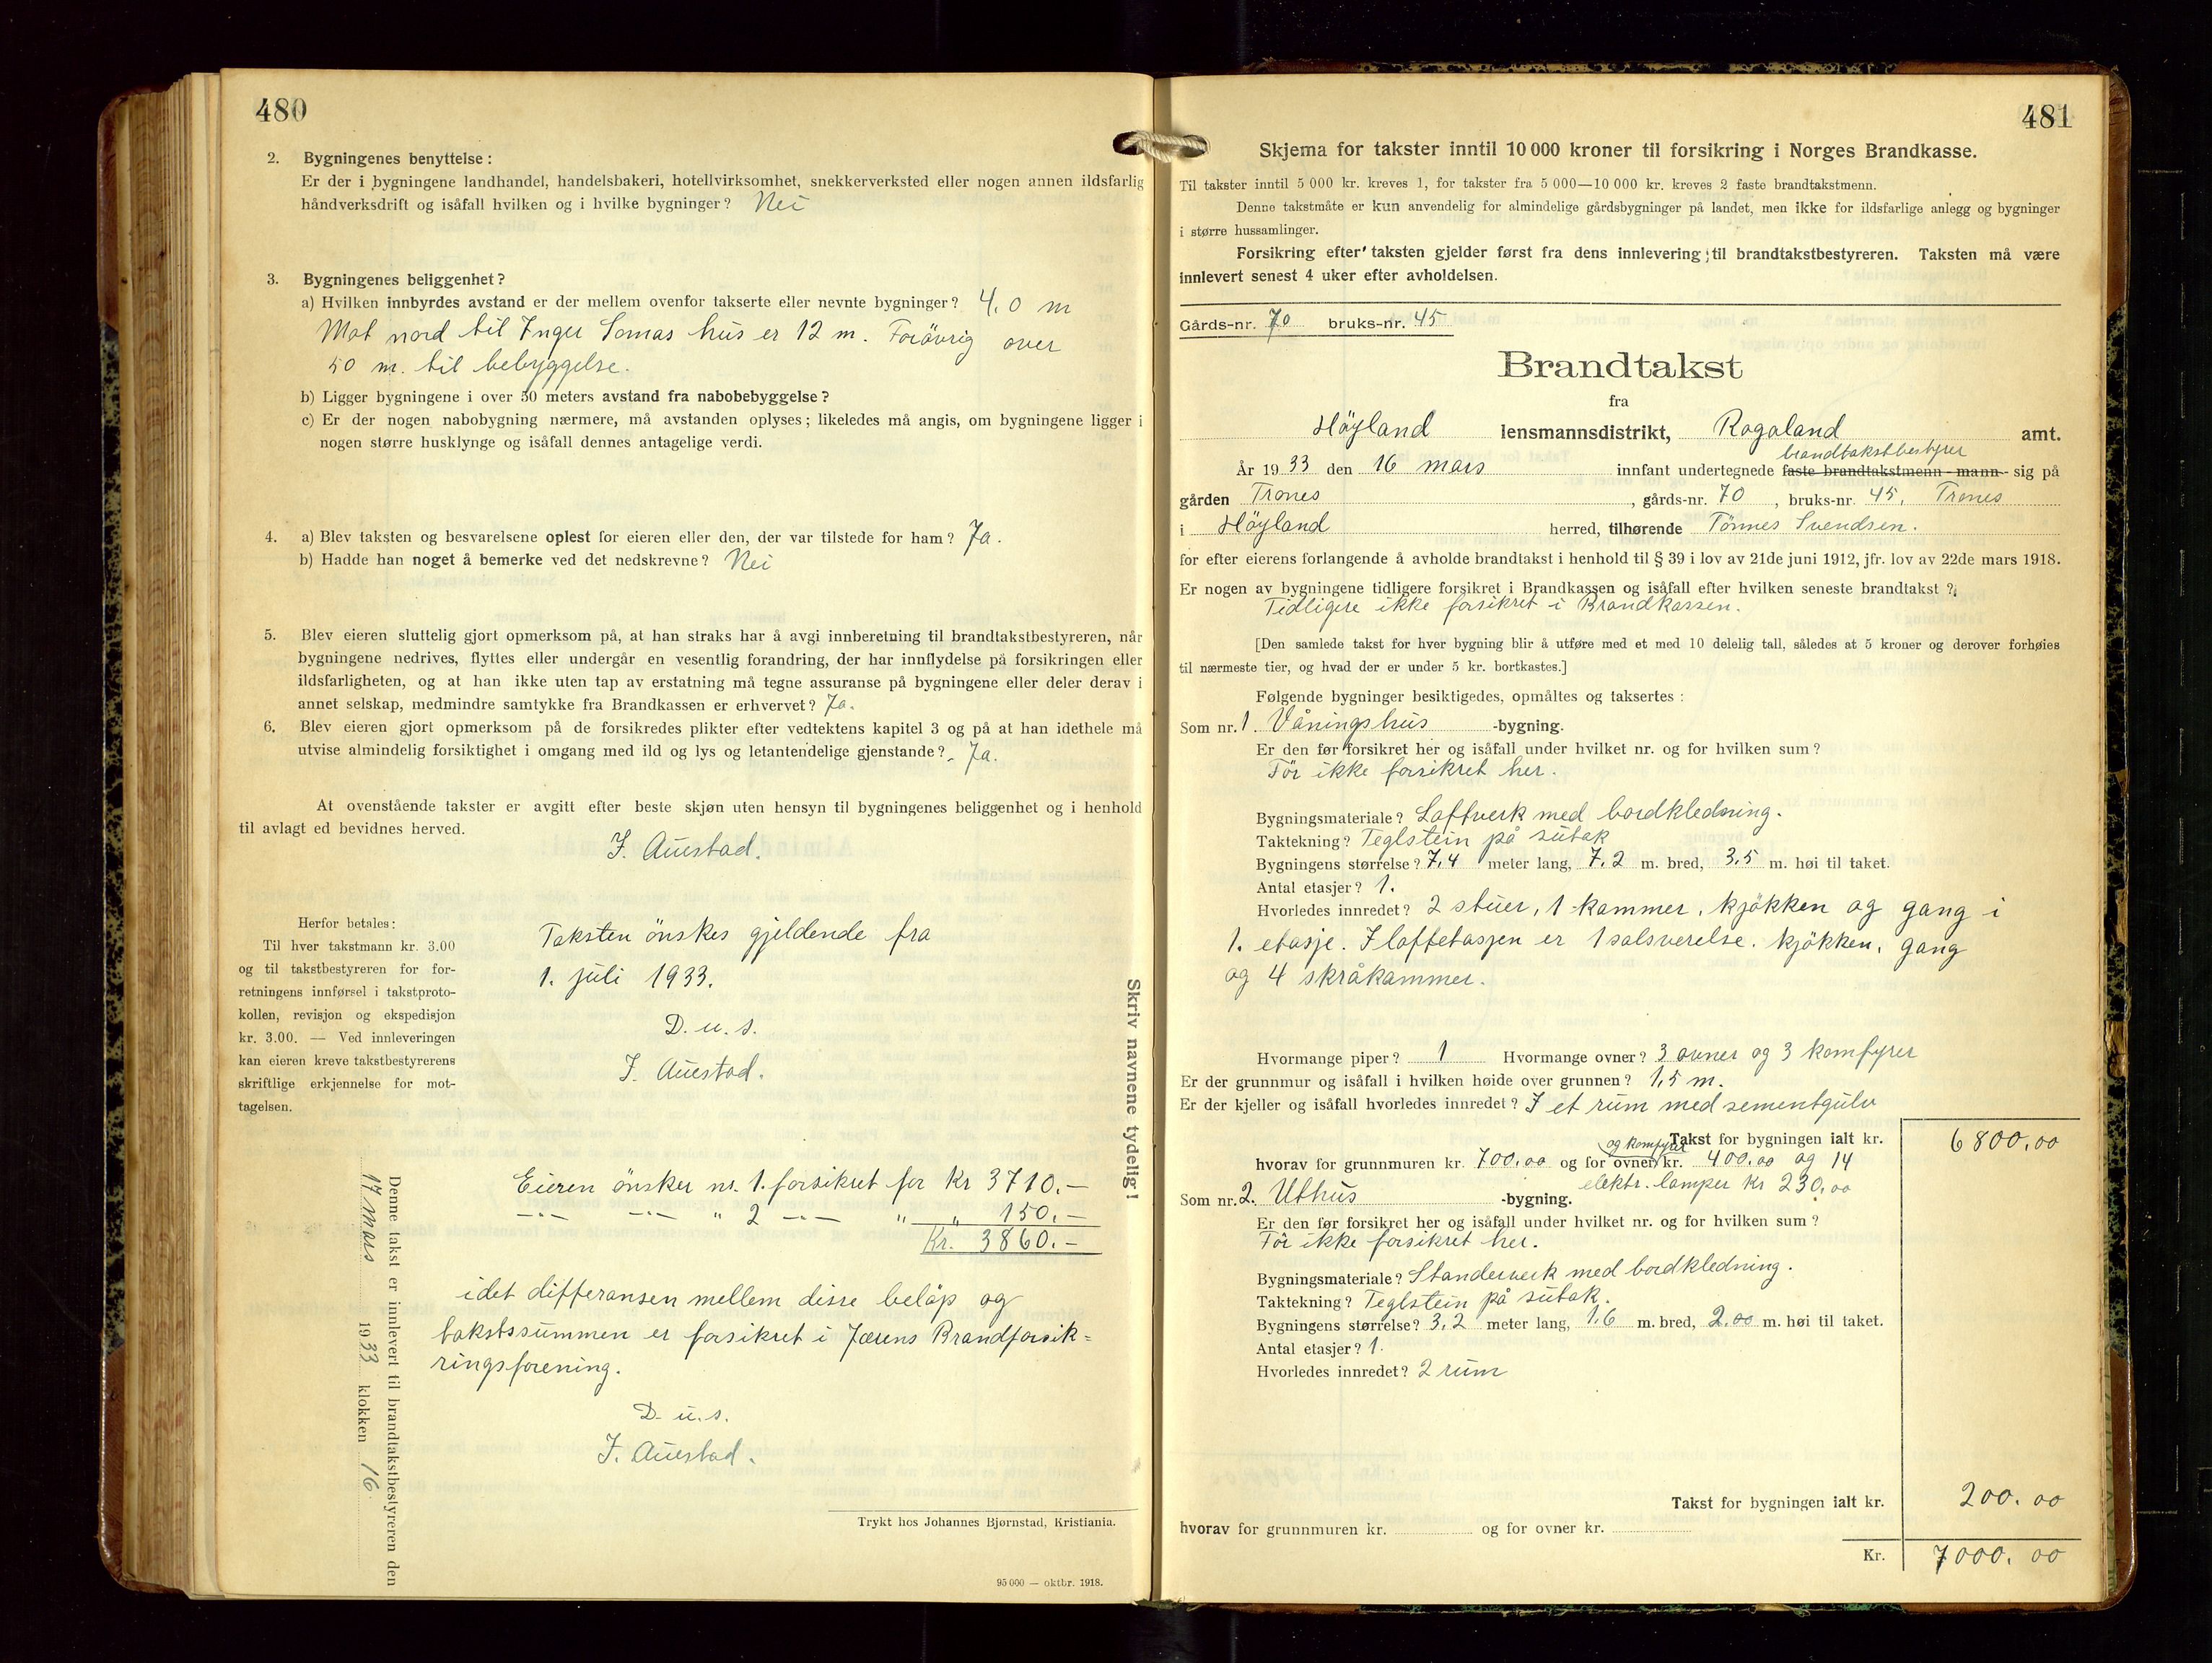 480
2. Bygningenes benyttelse:
Er der i bygningene landhandel, handelsbakeri, hotellvirksomhet, snekkerverksted eller nogen annen ildsfarlig
håndverksdrift og isåfall hvilken og i hvilke bygninger? Nei
3. Bygningenes beliggenhet?
a) Hvilken innbyrdes avstand er der mellem ovenfor takserte eller nevnte bygninger? 4,0 m
Mot nord til Inger Somas hus er 12 m. Forövrig over
50 m. til bebyggelse.
b) Ligger bygningene i over 50 meters avstand fra nabobebyggelse?
c) Er der nogen nabobygning nærmere, må avstanden oplyses; likeledes må angis, om bygningene ligger i
nogen større husklynge og isåfall dennes antagelige verdi.
4. a) Blev taksten og besvarelsene oplest for eieren eller den, der var tilstede for ham? Ja.
b) Hadde han noget å bemerke ved det nedskrevne? Nei
5. Blev eieren sluttelig gjort opmerksom på, at han straks har å avgi innberetning til brandtakstbestyreren, når
bygningene nedrives, flyttes eller undergår en vesentlig forandring, der har innflydelse på forsikringen eller
ildsfarligheten, og at han ikke uten tap av erstatning må tegne assuranse på bygningene eller deler derav i
annet selskap, medmindre samtykke fra Brandkassen er erhvervet? Ja.
6. Blev eieren gjort opmerksom på de forsikredes plikter efter vedtektens kapitel 3 og på at han idethele må
utvise almindelig forsiktighet i omgang med ild og lys og letantendelige gjenstande? Ja.
At ovenstående takster er avgitt efter beste skjøn uten hensyn til bygningenes beliggenhet og i henhold
til avlagt ed bevidnes herved.
J. Auestad.
Herfor betales:
Til hver takstmann kr. 3.00
og til takstbestyreren for for-
retningens innførsel i takstproto-
kollen, revisjon og ekspedisjon
kr. 3.00. — Ved innleveringen
kan eieren kreve takstbestyrerens
skriftlige erkjennelse for mot-
tagelsen.
Taksten önskes gjeldende fra
1. juli 1933.
D. u. s.
J. Auestad.
Eieren önsker nr. 1. forsikret for Kr 3710.-
-"- -"- " 2 -"- " " 150.-
Kr. 3860.-
idet differansen mellem disse belöp og
takstssummen er forsikret i Jærens Brandforsik=
ringsforening.
D. u. s.
J. Auestad.
Denne takst er innlevert til brandtakstbestyreren den
17 mars 1933 klokken 16.
Skriv navnene tydelig!
Trykt hos Johannes Bjørnstad, Kristiania.
95 000 — oktbr. 1918.
481
Skjema for takster inntil 10 000 kroner til forsikring i Norges Brandkasse.
Til takster inntil 5 000 kr. kreves 1, for takster fra 5 000—10 000 kr. kreves 2 faste brandtakstmenn.
Denne takstmåte er kun anvendelig for almindelige gårdsbygninger på landet, men ikke for ildsfarlige anlegg og bygninger
i større hussamlinger.
Forsikring efter taksten gjelder først fra dens innlevering til brandtakstbestyreren. Taksten må være
innlevert senest 4 uker efter avholdelsen.
Gårds-nr. 70 bruks-nr. 45
Brandtakst
fra
Höyland lensmannsdistrikt, Rogaland amt.
brandtakstbestyrer
År 1933 den 16 mars innfant undertegnede faste brandtakstmenn - mann - sig på
gården Trones, gårds-nr. 70, bruks-nr. 45, Trones
i Höyland herred, tilhørende Tönnes Svendsen.
for efter eierens forlangende å avholde brandtakst i henhold til § 39 i lov av 21de juni 1912, jfr. lov av 22de mars 1918.
Er nogen av bygningene tidligere forsikret i Brandkassen og isåfall efter hvilken seneste brandtakst?
Tidligere ikke forsikret i Brandkassen.
[Den samlede takst for hver bygning blir å utføre med et med 10 delelig tall, således at 5 kroner og derover forhøies
til nærmeste tier, og hvad der er under 5 kr. bortkastes.]
Følgende bygninger besiktigedes, opmåltes og taksertes:
Som nr. 1. Våningshus -bygning.
Er den før forsikret her og isåfall under hvilket nr. og for hvilken sum?
För ikke forsikret her.
Bygningsmateriale? Loftverk med bordkledning.
Taktekning? Teglstein på sutak
Bygningens størrelse? 7,4 meter lang, 7,2 m. bred, 3,5 m. høi til taket.
Antal etasjer? 1.
Hvorledes innredet? 2 stuer, 1 kammer, kjökken og gang i
1. etasje. I loftetasjen er 1 salsverelse, kjökken, gang
og 4 skråkammer.
Hvormange piper? 1 Hvormange ovner? 3 ovner og 3 komfyrer
Er der grunnmur og isåfall i hvilken høide over grunnen? 1,5 m.
Er der kjeller og isåfall hvorledes innredet? I et rum med sementgulv
Takst for bygningen ialt kr. 6800,00
og komfyrer
hvorav for grunnmuren kr. 700,00 og for ovner kr. 400,00 og 14
elektr. lamper kr 230,00
Som nr. 2. Uthus -bygning.
Er den før forsikret her og isåfall under hvilket nr. og for hvilken sum?
För ikke forsikret her.
Bygningsmateriale? Standerverk med bordkledning.
Taktekning? Teglstein på sutak.
Bygningens størrelse? 3,2 meter lang, 1,6 m. bred, 2,00 m. høi til taket.
Antal etasjer? 1.
Hvorledes innredet? 2 rum
Takst for bygningen ialt kr. 200,00
hvorav for grunnmuren kr. og for ovner kr.
Kr. 7000,00